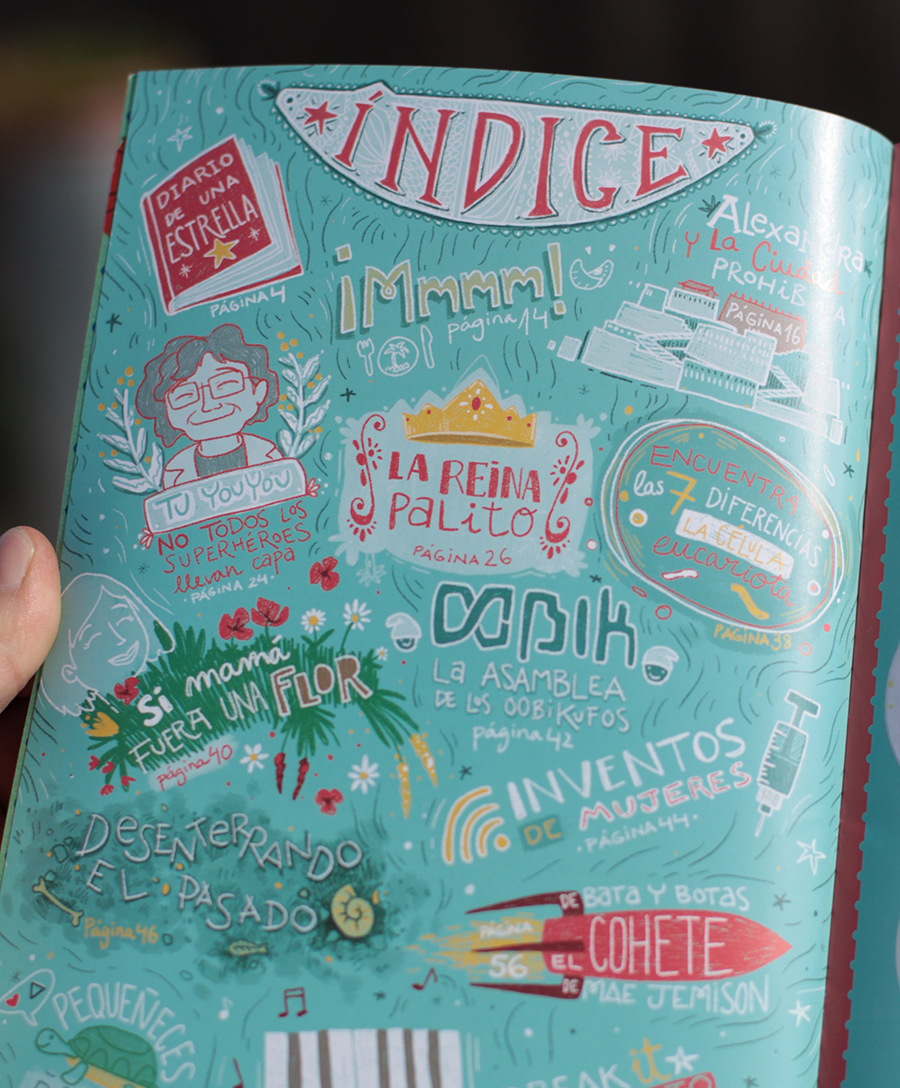 ÍNDICE
DIARIO
DE UNA
ESTRELLA
PÁGINA 4
¡Mmmm!
página 14
Alexandra
y La Ciudad
PROHIBIDA
PÁGINA 16
TU YOUYOU
NO TODOS LOS
SUPERHÉROES
llevan capa
·PÁGINA 24·
LA REINA
PALITO
PÁGINA 26
ENCUENTRA
las 7 DIFERENCIAS
LA CÉLULA
eucariota
PÁGINA 38
Si mamá
FUERA UNA FLOR
página 40
OOBIK
LA ASAMBLEA
DE LOS OOBIKUFOS
página 42
INVENTOS
DE MUJERES
·PÁGINA 44·
DESENTERRANDO
EL PASADO
Página 46
DE BATA Y BOTAS
PÁGINA
56
EL COHETE
DE MAE JEMISON
PEQUEÑECES
it